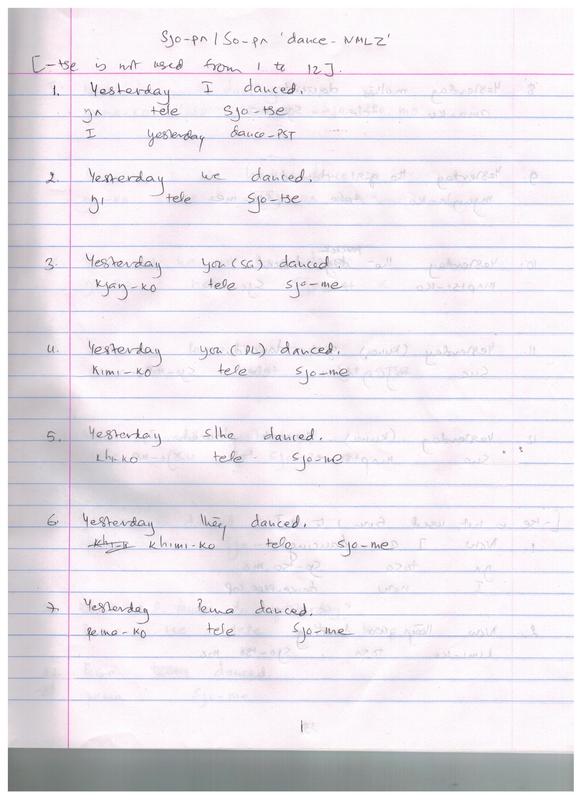 sjo-pʌ / so-pʌ 'dance-NMLZ'
[-tse is not used from 1 to 12].
1. Yesterday I danced.
ŋʌ tele sjo-tse
I yesterday dance-PST
2. Yesterday we danced.
ŋi tele sjo-tse
3. Yesterday you (SG) danced.
kjaŋ-ko tele sjo-me
4. Yesterday you (PL) danced.
kimi-ko tele sjo-me
5. Yesterday s/he danced.
khi-ko tele sjo-me
6. Yesterday they danced.
khimi-ko tele sjo-me
7. Yesterday Pema danced.
pema-ko tele sjo-me
1